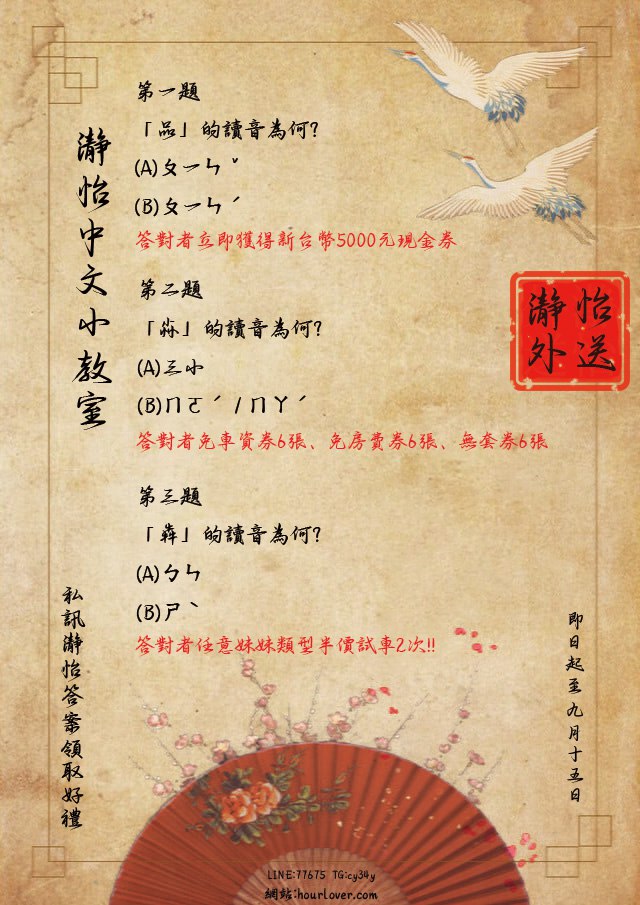 瀞怡中文小教室
第一題
「品」的讀音為何?
(A)ㄆㄧㄣˇ
(B)ㄆㄧㄣˊ
答對者立即獲得新台幣5000元現金券
第二題
「掱」的讀音為何?
(A)三小
(B)ㄇㄛˊ/ㄇㄚˊ
答對者免車資券6張、免房費券6張、無套券6張
第三題
「犇」的讀音為何?
(A)ㄅㄣ
(B)ㄕˋ
答對者任意妹妹類型半價試車2次!!
瀞怡
外送
私訊瀞怡答案領取好禮
即日起至九月十五日
LINE:77675 TG:cy34y
網站:hourlover.com